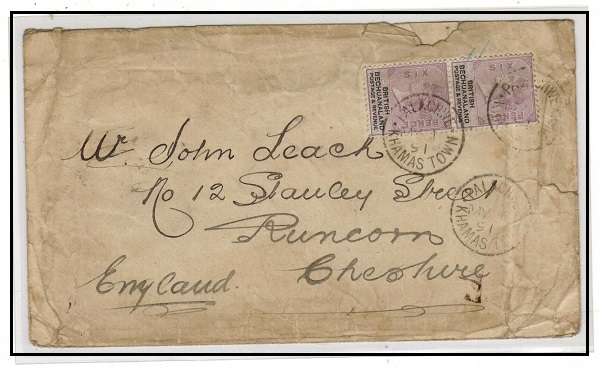 SIX
BRITISH
BECHUANALAND
POSTAGE & REVENUE
PENCE
SIX
BRITISH
BECHUANALAND
POSTAGE & REVENUE
PENCE
PALACHWE
KHAMAS TOWN
Mr. John Leack
No 12 Stanley Street
Runcorn
Cheshire
England.
KHAMAS